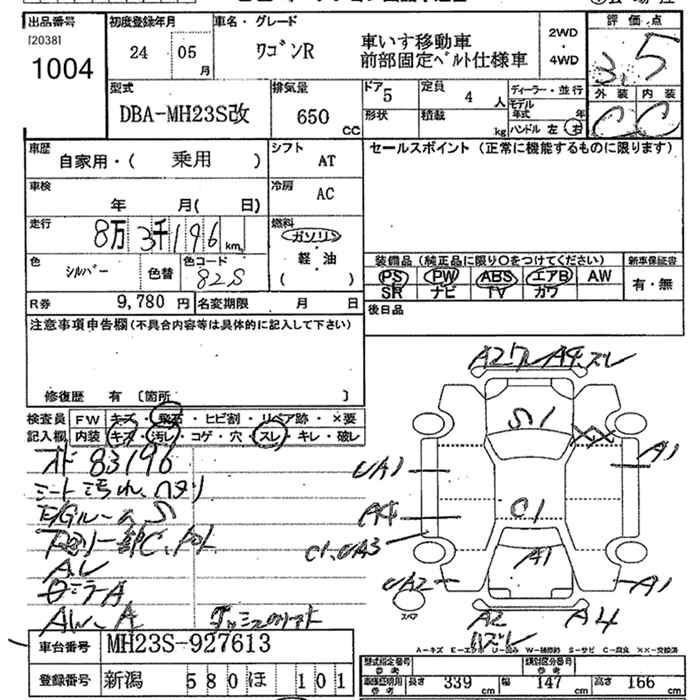 出品番号
[2038]
1004
初度登録年月
24 05
月
車名・グレード
ワゴンR
車いす移動車
前部固定ベルト仕様車
2WD
・
4WD
評価点
3.5
型式
DBA-MH23S改
排気量
650
CC
ドア 5
定員 4 人
形状
積載 kg
ディーラー・並行
モデル
年式 年
ハンドル 左 右
外装 内装
C C
車歴
自家用・( 乗用 )
シフト
AT
セールスポイント (正常に機能するものに限ります)
車検
年 月( 日)
冷房
AC
走行
8万3千196 km
燃料
ガソリン
軽・油
( )
色
シルバー
色替
色コード
82S
装備品(純正品に限り○をつけてください)
新車保証書
PS PW ABS エアB AW
SR ナビ TV カワ
有・無
R券 9,780 円
名変期限 月 日
後日品
注意事項申告欄(不具合内容等は具体的に記入して下さい)
修復歴 有 [箇所 ]
検査員 FW キズ・飛石・ヒビ割・リペア跡・×要
記入欄 内装 キズ・汚レ・コゲ・穴・スレ・キレ・破レ
オド 83196
シート汚れ、ヘタリ
E/Gルームサ
A27ル A4.スレ
S1
A1
UA1
A4
C1
C1.UA3
A1
UA2
A1
スペア
A2
A4
車台番号
MH23S-927613
登録番号
新潟 580 ほ 101
A-キズ E-エクボ U-凹み W-補修跡 S-サビ C-腐食 ××-交換済
型式指定番号
参考
類別区分番号
参考
車検証明用
参考
長さ 339 cm
幅 147 cm
高さ 166 cm